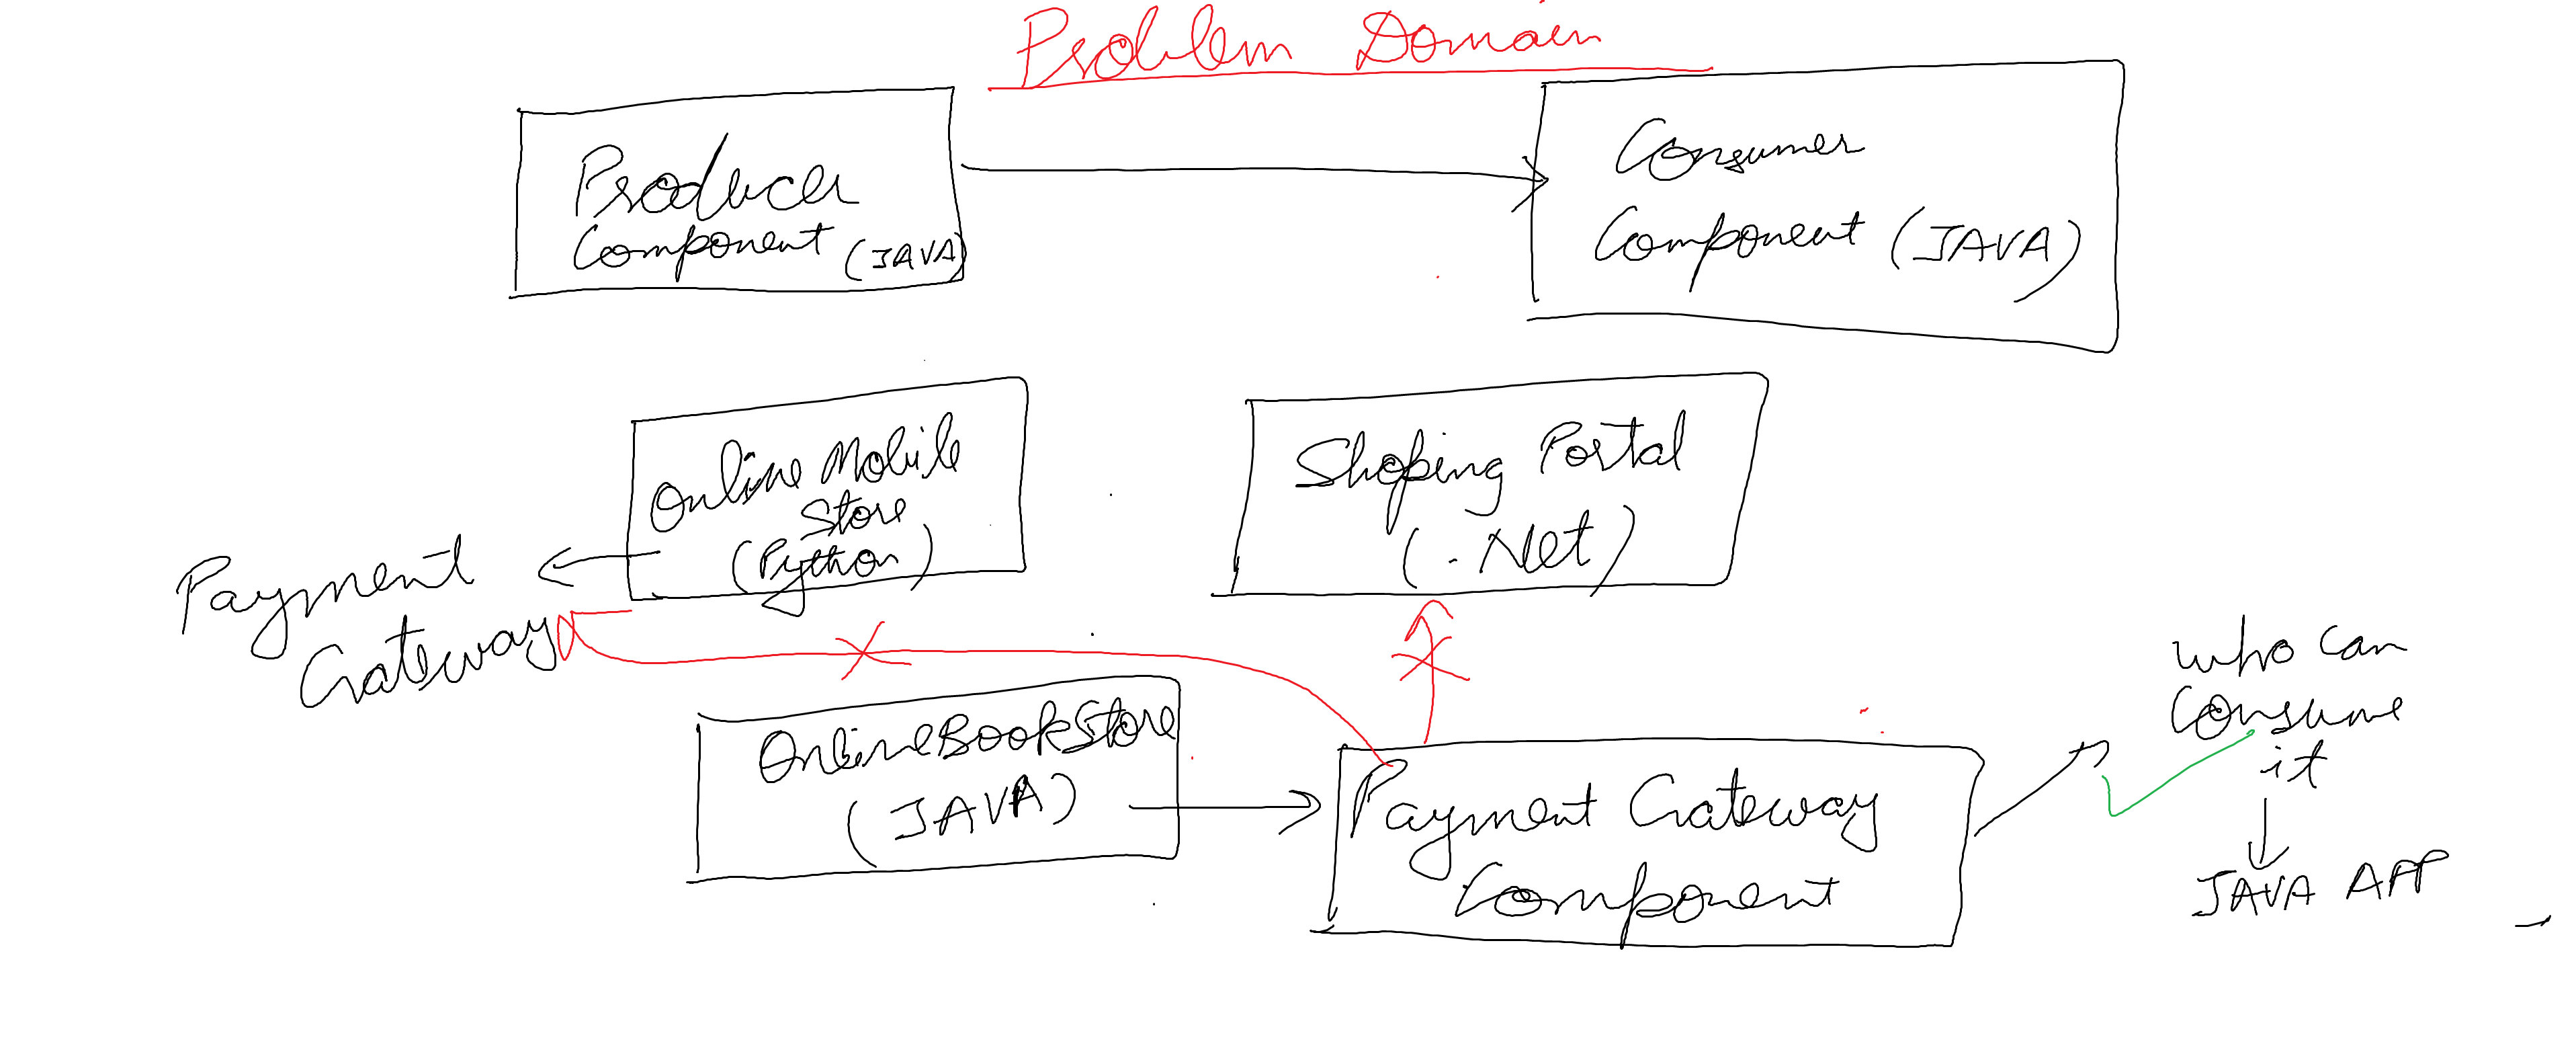 Problem Domain
Producer
Component (JAVA)
Consumer
Component (JAVA)
Online Mobile
Store
(Python)
Shoping Portal
(.Net)
Payment
Gateway
OnlineBookStore
(JAVA)
Payment Gateway
Component
who can
Consume
it
JAVA APP